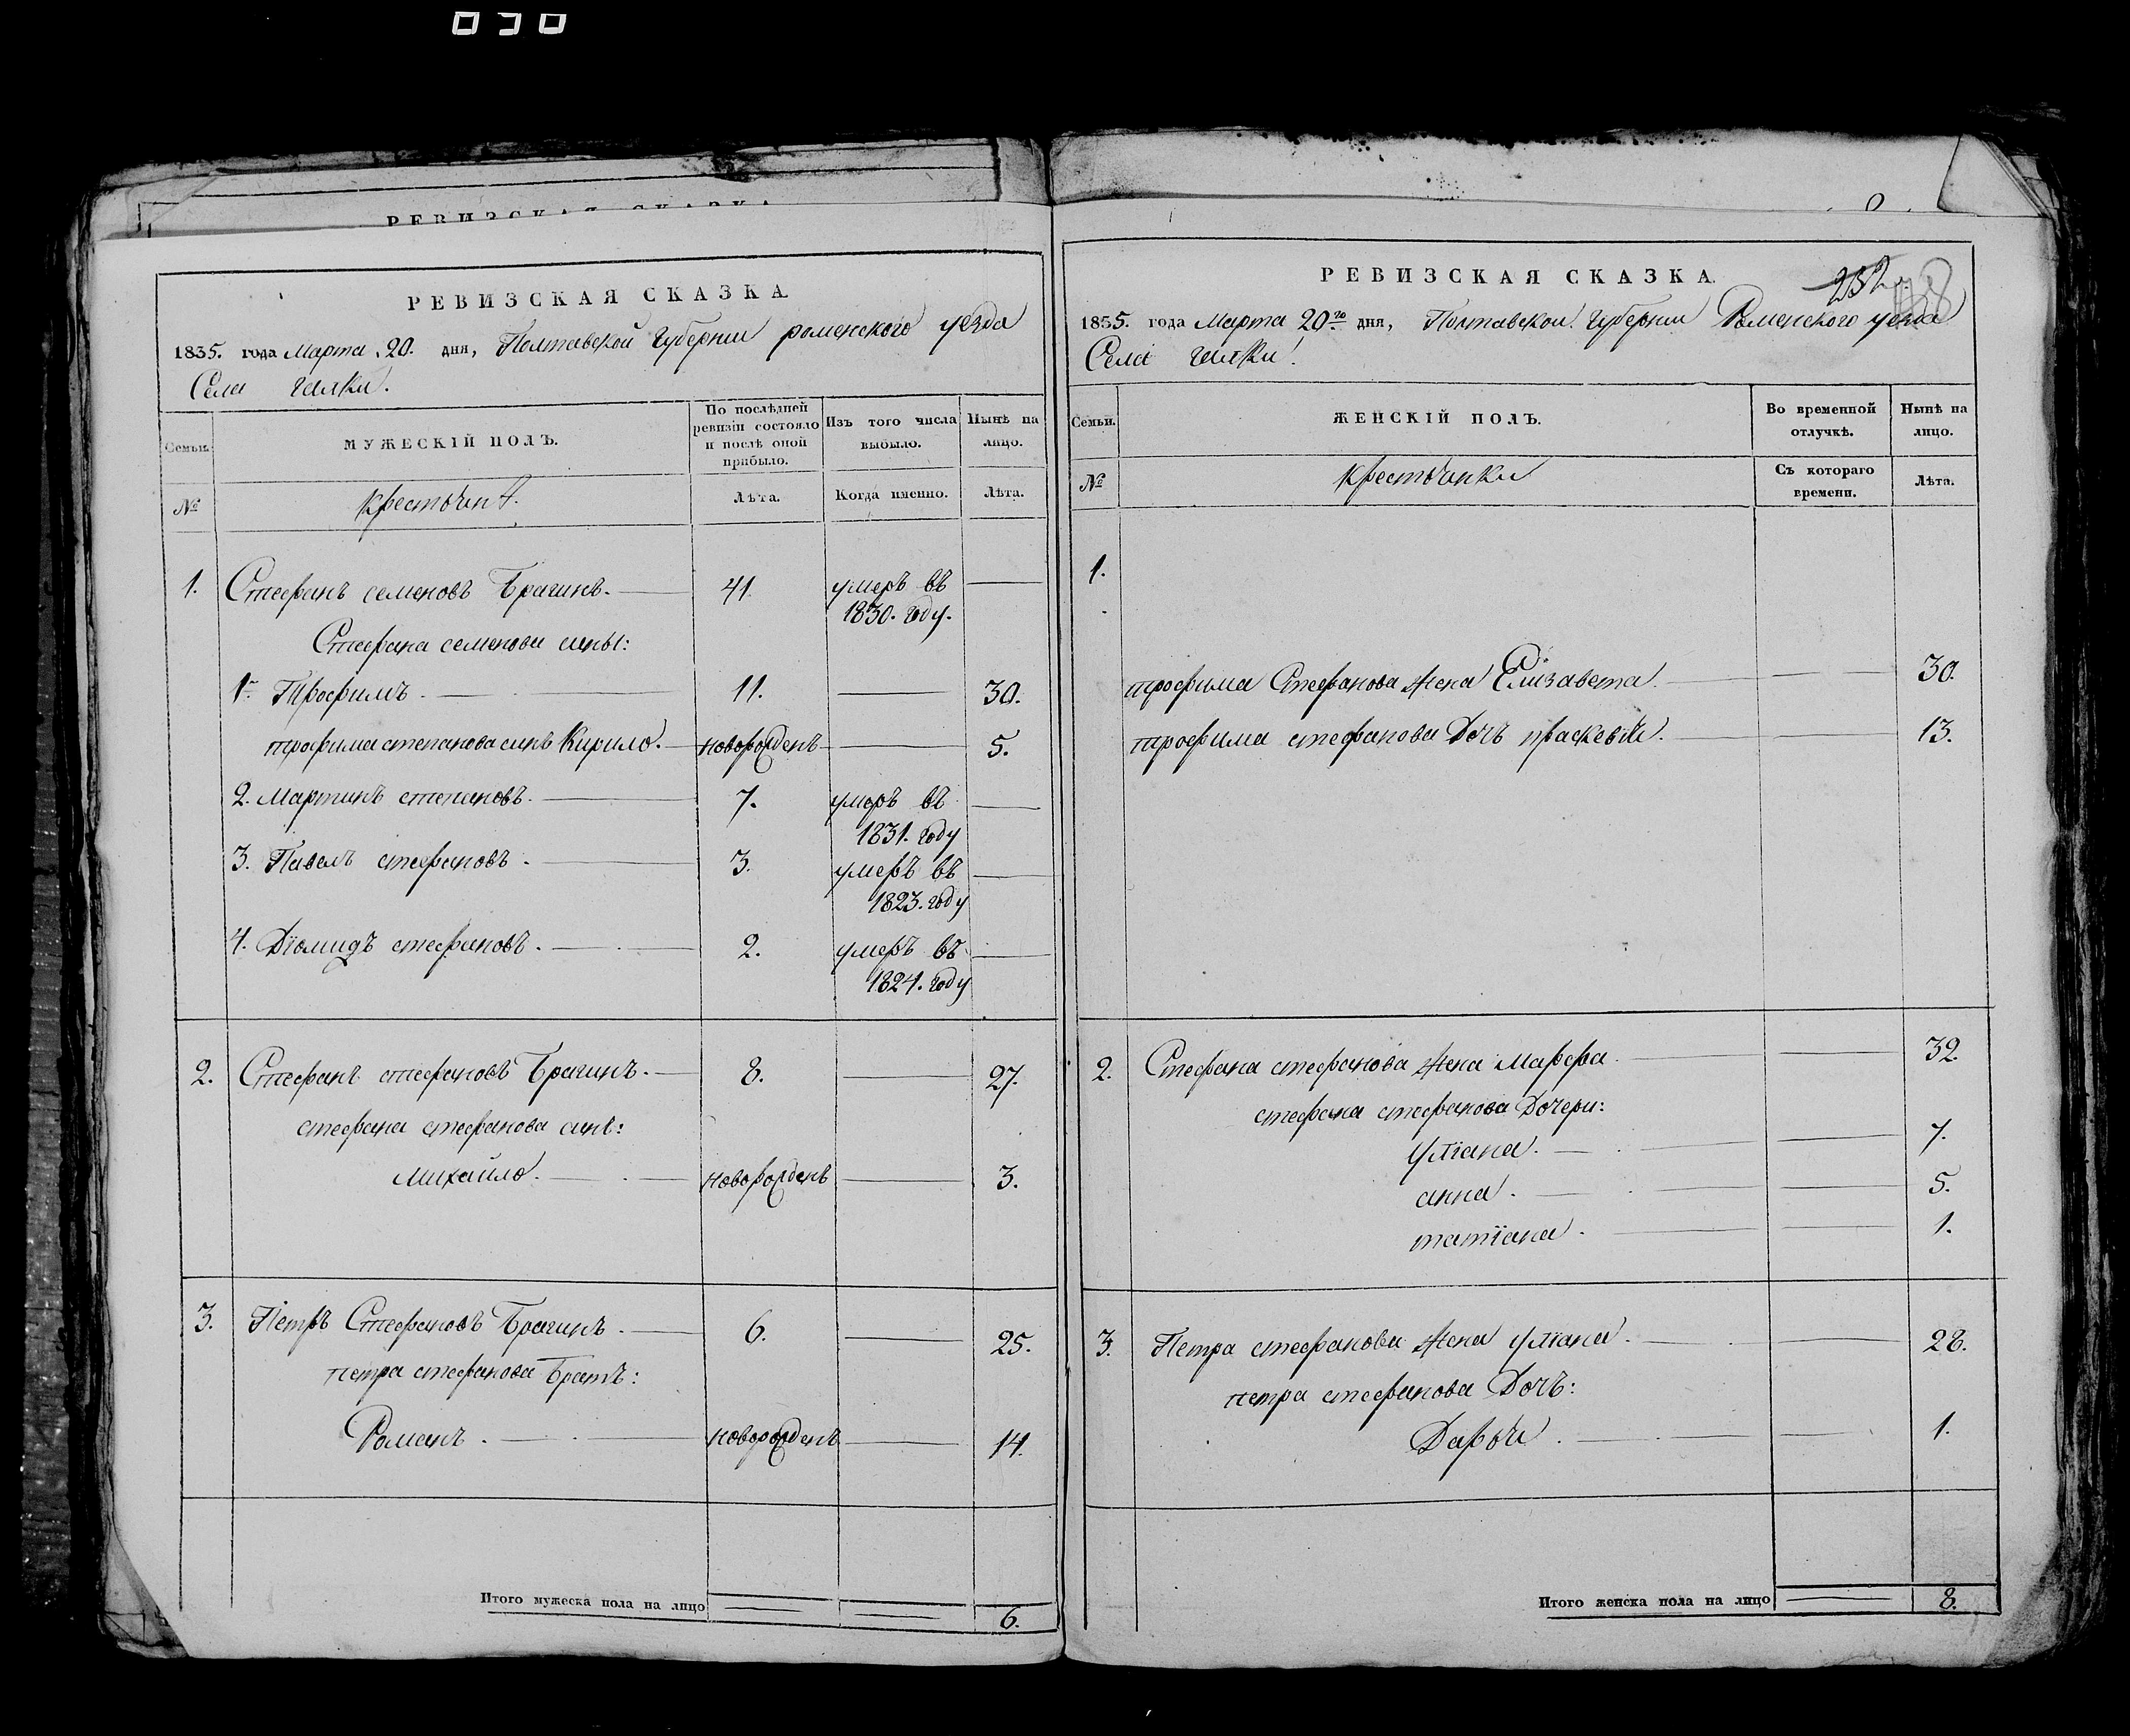 030
РЕВИЗСКАЯ СКАЗКА
РЕВИЗСКАЯ СКАЗКА
1835. года Марта 20. дня, Полтавской Губернии роменского уезда
Села Гилки.
Семьи.
МУЖЕСКІЙ ПОЛЪ.
По послѣдней ревизіи состояло и послѣ оной прибыло.
Изъ того числа выбыло.
Нынѣ на лицо.
№
Лѣта.
Когда именно.
Лѣта.
1. Стефанъ семеновъ Брагинъ. 41. умеръ въ
1830. году.
Стефана семенова сины:
1й Трофимъ. 11. 30.
трофима степанова синъ Кирило. новорожденъ 5.
2. Мартинъ степановъ. 7. умеръ въ
1831. году
3. Павелъ стефановъ. 3. умеръ въ
1823. году
4. Діомидъ стефановъ. 2. умеръ въ
1824. году
2. Стефанъ стефановъ Брагинъ. 8. 27.
стефана стефанова синъ:
Михайло. новорожденъ 3.
3. Петръ Стефановъ Брагинъ. 6. 25.
петра стефанова Братъ:
Романъ. новорожденъ 14.
Итого мужеска пола на лицо 6.
РЕВИЗСКАЯ СКАЗКА
232
1835. года Марта 20го дня, Полтавской Губернии Роменского уезда
Села Гилки.
Семьи.
ЖЕНСКІЙ ПОЛЪ.
Во временной отлучкѣ.
Нынѣ на лицо.
№
Съ котораго времени.
Лѣта.
1.
трофима Стефанова жена Елізавета. 30.
трофима стефанова Дочъ 13.
2. Стефана стефанова жена Марфа 32.
стефана стефанова Дочери:
Уліана. 7.
анна. 5.
татіана. 1.
3. Петра стефанова жена уліана. 28.
петра стефанова Дочъ:
1.
Итого женска пола на лицо 8.